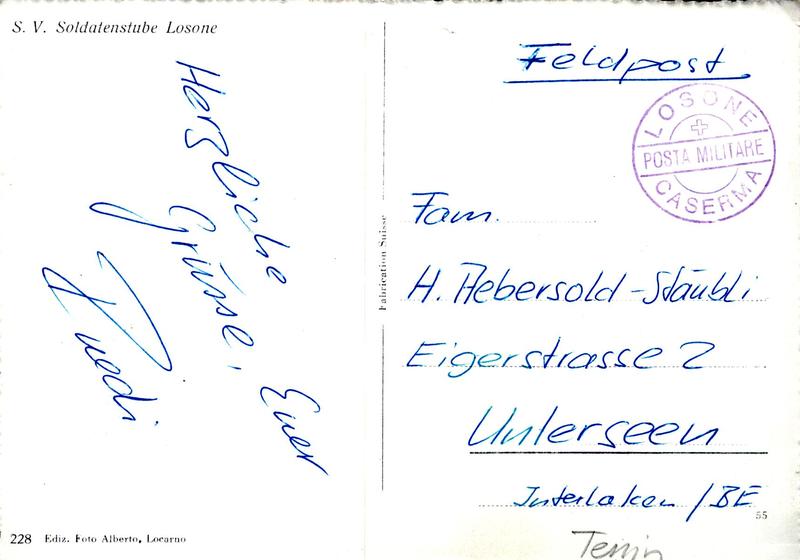 S. V. Soldatenstube Losone
Herzliche
Grüsse, Euer
Ruedi
228 Ediz. Foto Alberto, Locarno
Fabrication Suisse
Feldpost
LOSONE
POSTA MILITARE
CASERMA
Fam.
H. Aebersold-Stäubli
Eigerstrasse 2
Unterseen
Interlaken / BE
55